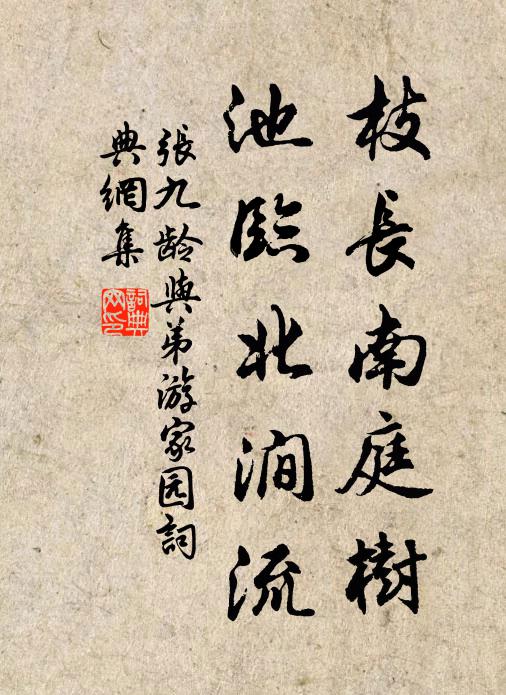 枝長南庭樹
池臨北澗流
張九龄與弟游家园詞
典網集
詞典網印